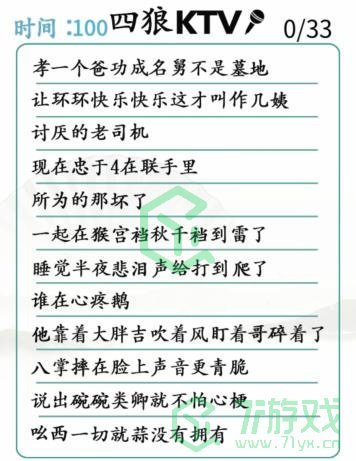 时间:100 四狼KTV 0/33
孝一个爸功成名舅不是墓地
让环环快乐快乐这才叫作几姨
讨厌的老司机
现在忠于4在联手里
所为的那坏了
一起在猴宫裆秋千裆到雷了
睡觉半夜悲泪声给打到爬了
谁在心疼鹅
他靠着大胖吉吹着风盯着哥碎着了
八掌摔在脸上声音更青脆
说出碗碗类卿就不怕心梗
吆西一切就蒜没有拥有
7i游戏
www.71yx.cn